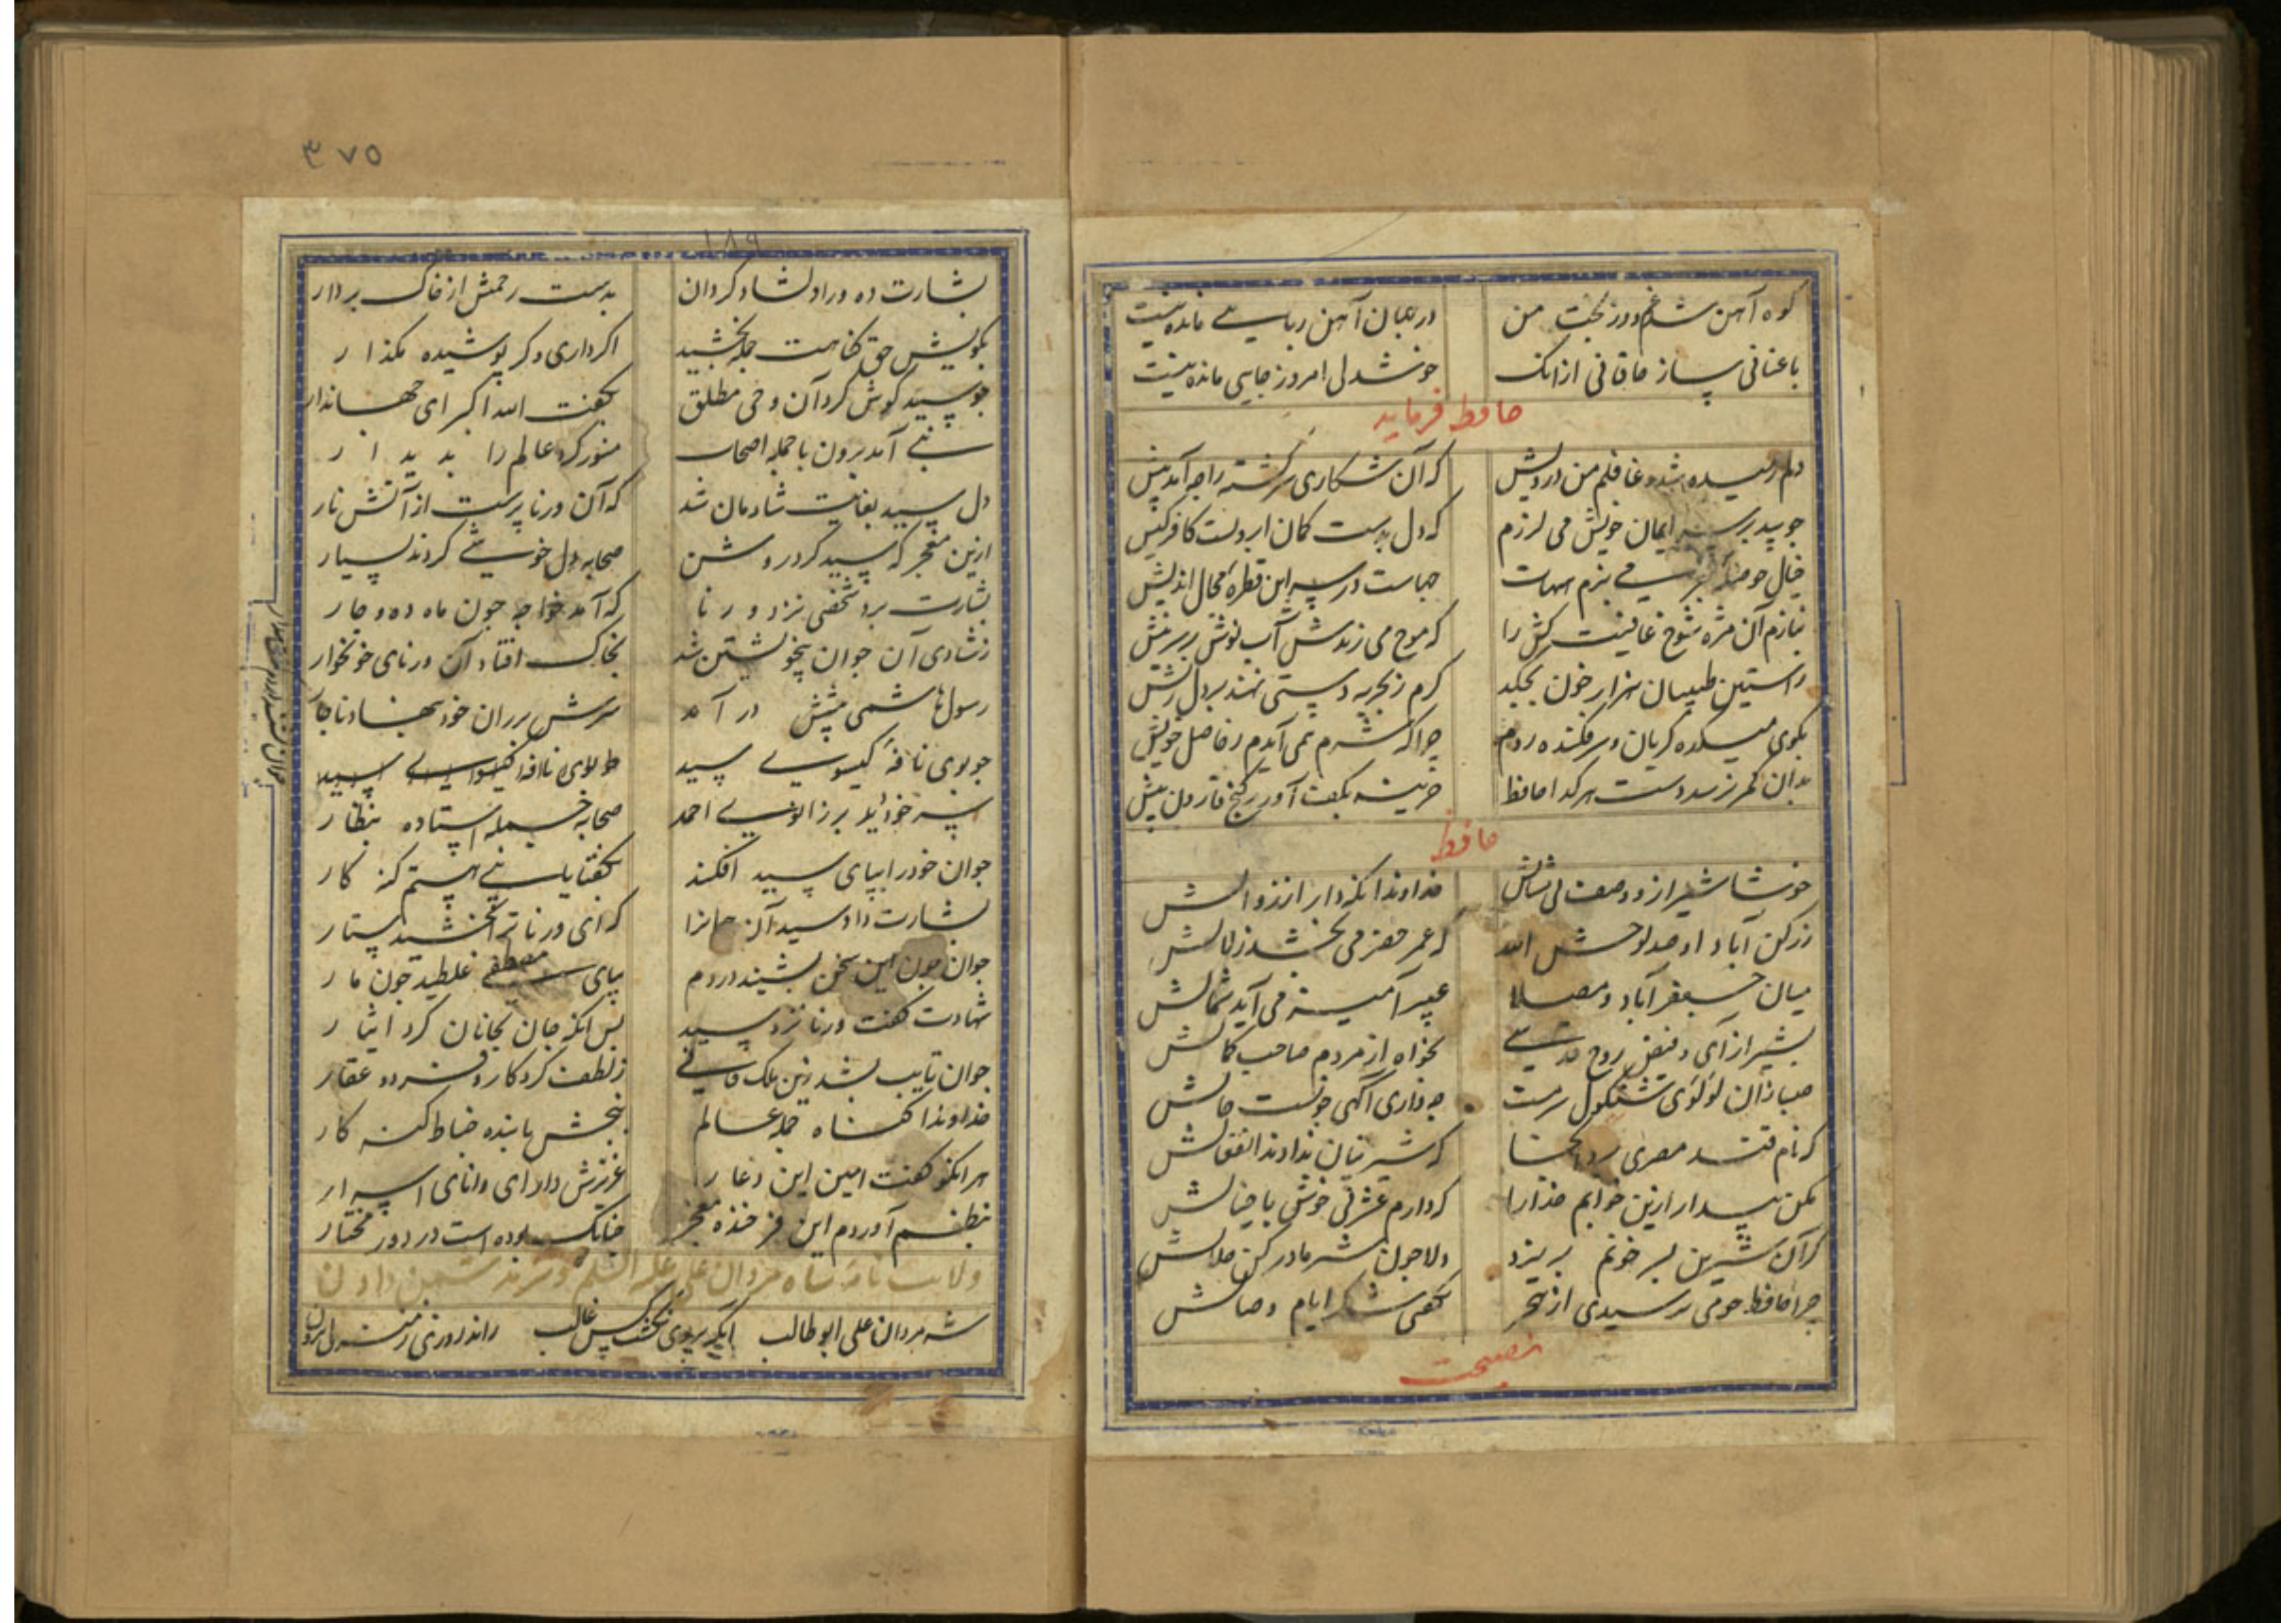 کوه آهن شد غم و در بخت من در جهان آهن ربایی مانده نیست
با عنا نی ساز خاقانی از انک خوشدل امروز جایی مانده نیست
حافظ فرماید
دلم رمیده شد و غافلم من درویش که آن شکاری سرکشته را چه آمد پیش
چو بید بر سر ایمان خویش می لرزم که دل بدست کمان ابرویست کافر کیش
خیال حوصله بحر می پزم هیهات جهاست در سر این قطره محال اندیش
بنازم آن مژه شوخ عافیت کش را که موج می زندش آب نوش بر سر نیش
ز آستین طبیبان هزار خون بچکد کرم بتجربه دستی نهند بر دل ریش
بکوی میکده کریان و سرفکنده روم چرا که شرم نمی آیدم ز حاصل خویش
بدان کمر نرسد دست هر کدا حافظ خزینه بکف آور ز کنج قارون بیش
حافظ
خوشا شیراز و وصف بی مثالش خداوندا نکه دار از زوالش
ز رکن آباد او صد لوحش الله که عمر خضر می بخشد زلالش
میان جعفر آباد و مصلا عبیر آمیز می آید شمالش
بشیراز آی و فیض روح قدسی بخواه از مردم صاحب کمالش
صبا زان لولوی شنکول سرمست چه داری آکهی چونست حالش
که نام قند مصری برد انجا که شیرینان ندادند انفعالش
مکن بیدار ازین خوابم خدارا که دارم عشرتی خوش با خیالش
کر آن شیرین پسر خونم بریزد دلا چون شیر مادر کن حلالش
چرا حافظ چو می ترسیدی از هجر نکفتی شکر ایام وصالش
نصیحت
۳۷۵
۱۸۹
بشارت ده ورا دلشاد کردان بدست رحمتش از خاک بردار
بکویش حق کناهت جمله بخشید اکر داری دکر پوشیده مکذار
چو سید کوش کرد آن وحی مطلق بکفت الله اکبر ای جهاندار
نبی آمد برون با جمله اصحاب منور کرد عالم را بدیدار
دل سید بغایت شادمان شد که آن ورنا پرست از آتش نار
ازین معجز که سید کرد روشن صحابه دل خوشی کردند بسیار
بشارت برد شخصی نزد ورنا که آمد خواجه چون ماه ده و چار
ز شادی آن جوان بیخویشتن شد بخاک افتاد آن ورنای خونخوار
رسول هاشمی پیشش در آمد سرش بر ران خود بنهاد ناچار
چو بوی نافه کیسوی سید
سر خود دید بر زانوی احمد صحابه جمله استاده بنظار
جوان خود را بپای سید افکند بکفتا یا نبی هستم کنه کار
بشارت داد سید آن جوانرا که ای ورنا ترا بخشید ستار
جوان چون این سخن بشنید در دم بپای مصطفی غلطید چون مار
شهادت کفت ورنا نزد سید پس آنکه جان بجانان کرد ایثار
جوان تایب بشد زین ملک فانی ز لطف کردکار
خداوندا کناه جمله عالم ببخش
هر آنکو کفت امین این دعا را عزیزش دار ای دانای اسرار
بنظم آوردم این فرخنده معجز چنانک بوده است در دور مختار
ولایت نامه شاه مردان علی علیه السلم
شه مردان علی ابو طالب